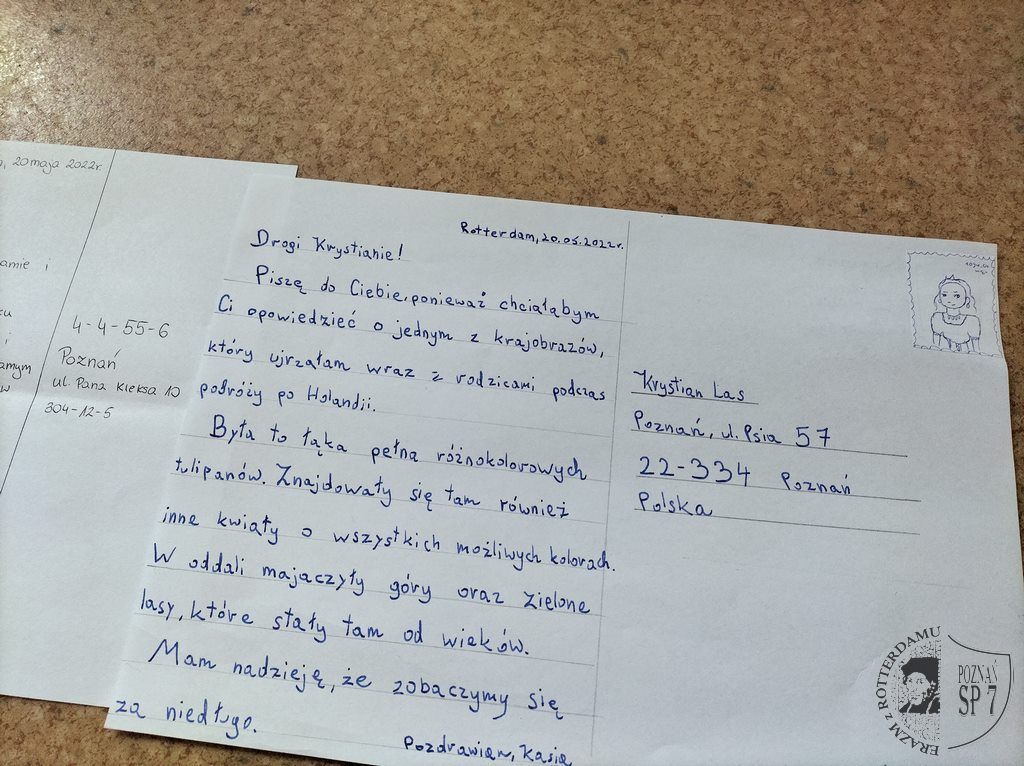 20 maja 2022r.
amie i
i
amym
w
4-4-55-6
Poznań
ul. Pana Kleksa 10
304-12-5
Rotterdam, 20.05.2022r.
Drogi Krystianie!
Piszę do Ciebie, ponieważ chciałabym
Ci opowiedzieć o jednym z krajobrazów,
który ujrzałam wraz z rodzicami podczas
podróży po Holandii.
Była to łąka pełna różnokolorowych
tulipanów. Znajdowały się tam również
inne kwiaty o wszystkich możliwych kolorach.
W oddali majaczyły góry oraz zielone
lasy, które stały tam od wieków.
Mam nadzieję, że zobaczymy się
za niedługo.
Pozdrawiam, Kasia
Krystian Las
Poznań, ul. Psia 57
22-334 Poznań
Polska
ERAZM z ROTTERDAMU
POZNAŃ
SP 7